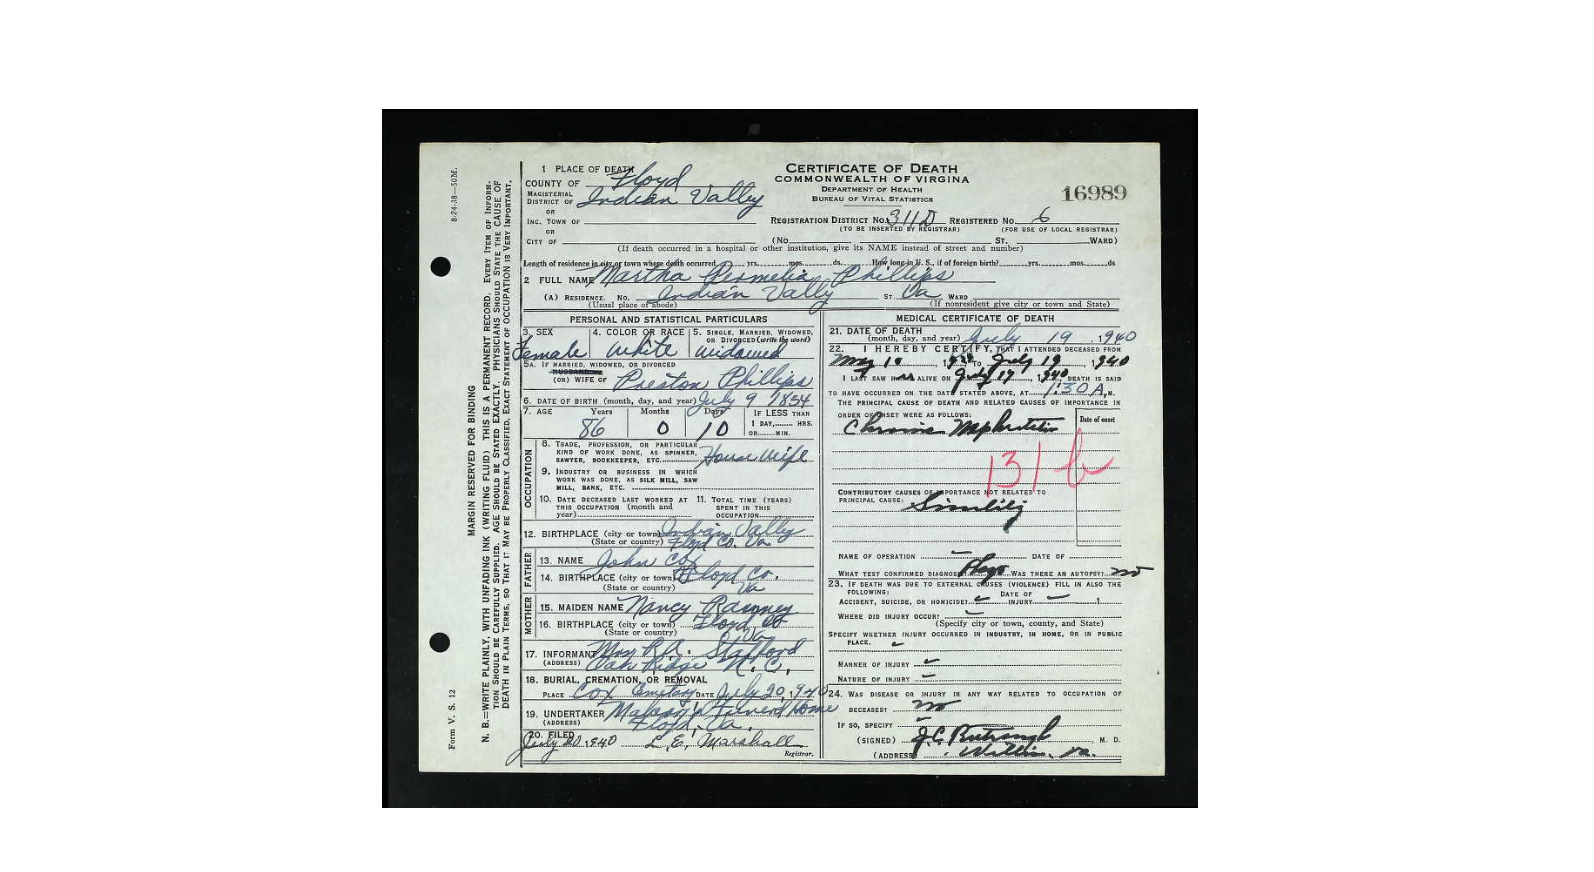 1 PLACE OF DEATH
COUNTY OF Floyd
MAGISTERIAL DISTRICT OF Indian Valley
OR
INC. TOWN OF
OR
CITY OF
CERTIFICATE OF DEATH
COMMONWEALTH OF VIRGINIA
DEPARTMENT OF HEALTH
BUREAU OF VITAL STATISTICS
16989
REGISTRATION DISTRICT NO. 311D REGISTERED NO. 6
(TO BE INSERTED BY REGISTRAR) (FOR USE OF LOCAL REGISTRAR)
(No. ST. WARD)
(If death occurred in a hospital or other institution, give its NAME instead of street and number)
Length of residence in city or town where death occurred yrs. mos. ds. How long in U. S., if of foreign birth? yrs. mos. ds
2 FULL NAME Martha Permelia Phillips
(A) RESIDENCE. No. Indian Vally ST. Va WARD
(Usual place of abode) (If nonresident give city or town and State)
PERSONAL AND STATISTICAL PARTICULARS
3. SEX Female
4. COLOR OR RACE White
5. SINGLE, MARRIED, WIDOWED, OR DIVORCED (write the word) Widowed
5A. IF MARRIED, WIDOWED, OR DIVORCED
HUSBAND OF
(OR) WIFE OF Preston Phillips
6. DATE OF BIRTH (month, day, and year) July 9 1854
7. AGE Years Months Days IF LESS THAN
1 DAY, HRS.
OR MIN.
86 0 10
OCCUPATION
8. TRADE, PROFESSION, OR PARTICULAR
KIND OF WORK DONE, AS SPINNER,
SAWYER, BOOKKEEPER, ETC. House Wife
9. INDUSTRY OR BUSINESS IN WHICH
WORK WAS DONE, AS SILK MILL, SAW
MILL, BANK, ETC.
10. DATE DECEASED LAST WORKED AT
THIS OCCUPATION (month and
year)
11. TOTAL TIME (YEARS)
SPENT IN THIS
OCCUPATION
12. BIRTHPLACE (city or town) Indian Valley
(State or country) Floyd Co. Va
FATHER
13. NAME John Cox
14. BIRTHPLACE (city or town) Floyd Co.
(State or country) Va
MOTHER
15. MAIDEN NAME Nancy
16. BIRTHPLACE (city or town) Floyd Co
(State or country) Va
17. INFORMANT Mrs R.A. Stafford
(ADDRESS) Oak Ridge N.C.
18. BURIAL, CREMATION, OR REMOVAL
PLACE Cox DATE July 20, 1940
19. UNDERTAKER Funeral Home
(ADDRESS) Floyd, Va.
20. FILED July 20, 1940 L.E. Marshall
Registrar.
MEDICAL CERTIFICATE OF DEATH
21. DATE OF DEATH
(month, day, and year) July 19, 1940
22. I HEREBY CERTIFY, THAT I ATTENDED DECEASED FROM
TO July 19, 1940
I LAST SAW ALIVE ON July 17, 1940, DEATH IS SAID
TO HAVE OCCURRED ON THE DATE STATED ABOVE, AT 1:30 A.M.
THE PRINCIPAL CAUSE OF DEATH AND RELATED CAUSES OF IMPORTANCE IN
ORDER OF ONSET WERE AS FOLLOWS:
Date of onset
Chronic Nephritis
131 b
CONTRIBUTORY CAUSES OF IMPORTANCE NOT RELATED TO
PRINCIPAL CAUSE:
NAME OF OPERATION DATE OF
WHAT TEST CONFIRMED DIAGNOSIS? WAS THERE AN AUTOPSY? no
23. IF DEATH WAS DUE TO EXTERNAL CAUSES (VIOLENCE) FILL IN ALSO THE
FOLLOWING:
ACCIDENT, SUICIDE, OR HOMICIDE? DATE OF INJURY , 1
WHERE DID INJURY OCCUR?
(Specify city or town, county, and State)
SPECIFY WHETHER INJURY OCCURRED IN INDUSTRY, IN HOME, OR IN PUBLIC
PLACE.
MANNER OF INJURY
NATURE OF INJURY
24. WAS DISEASE OR INJURY IN ANY WAY RELATED TO OCCUPATION OF
DECEASED? no
IF SO, SPECIFY
(SIGNED) J.C. M. D.
(ADDRESS) Willis, Va.
MARGIN RESERVED FOR BINDING
N. B.—WRITE PLAINLY, WITH UNFADING INK (WRITING FLUID) THIS IS A PERMANENT RECORD. EVERY ITEM OF INFORM-
TION SHOULD BE CAREFULLY SUPPLIED. AGE SHOULD BE STATED EXACTLY. PHYSICIANS SHOULD STATE THE CAUSE OF
DEATH IN PLAIN TERMS, SO THAT IT MAY BE PROPERLY CLASSIFIED. EXACT STATEMENT OF OCCUPATION IS VERY IMPORTANT.
Form V. S. 12
8-24-38—50M.